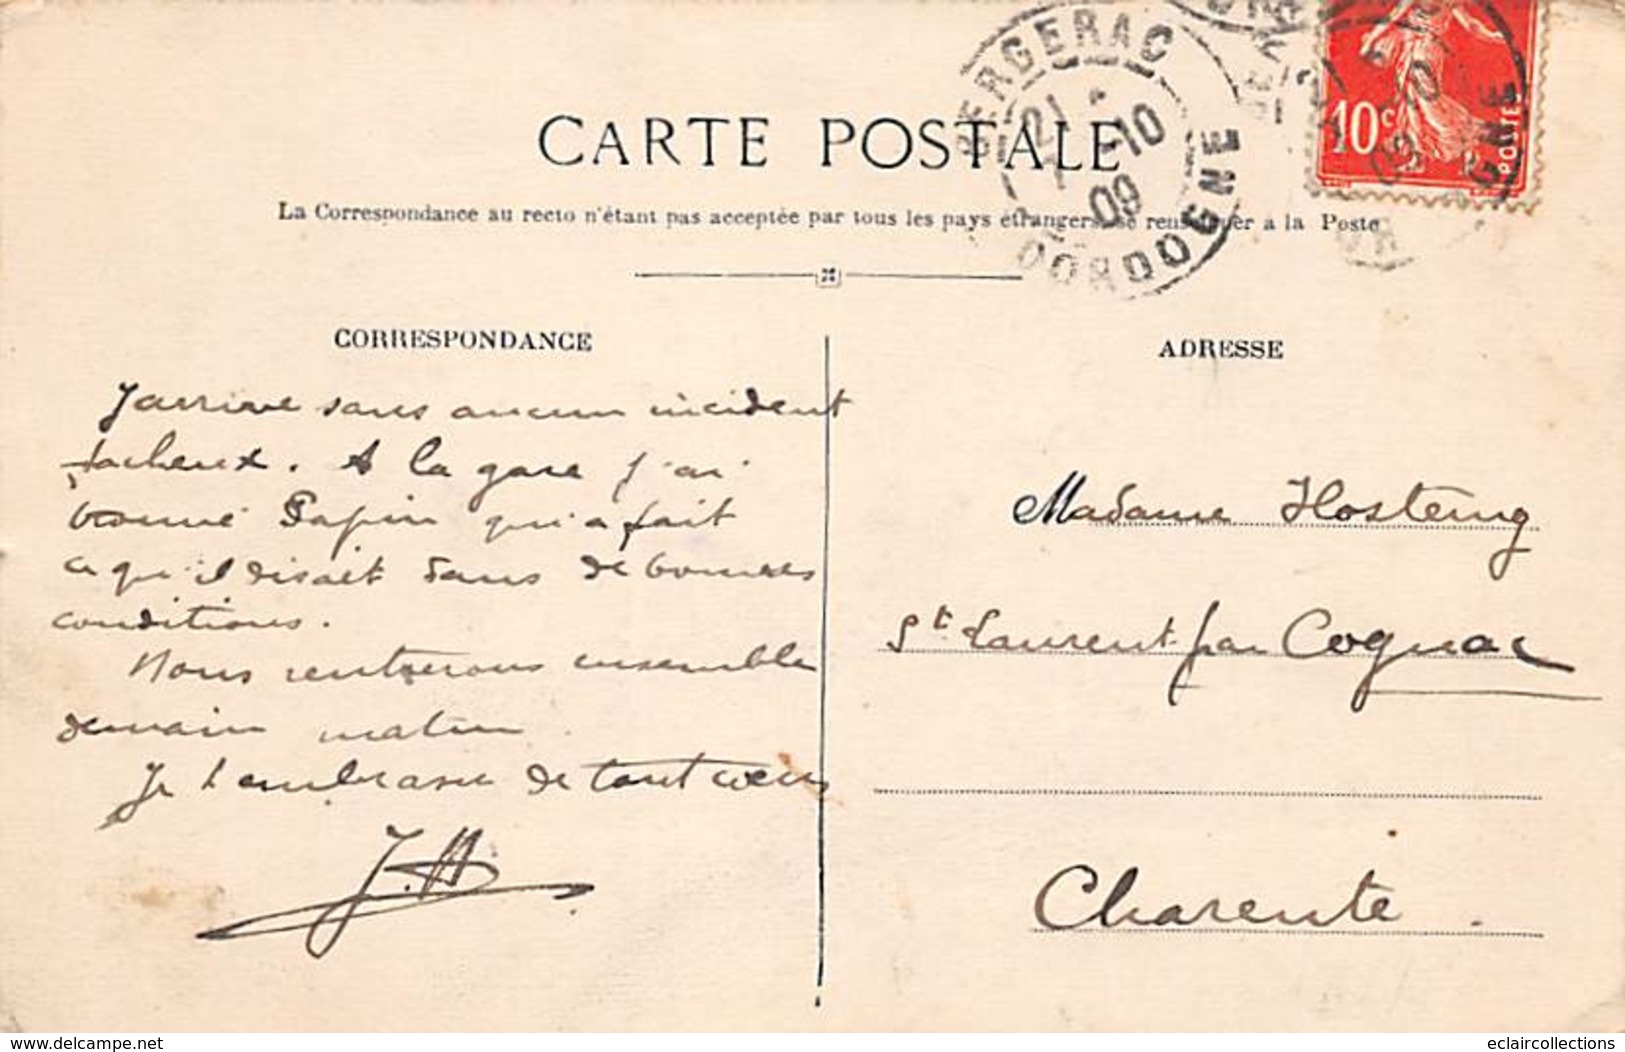 CARTE POSTALE
La Correspondance au recto n'étant pas acceptée par tous les pays étrangers, se renseigner à la Poste
BERGERAC
21 1-10
09
DORDOGNE
10c
POSTES
CORRESPONDANCE
J'arrive sans aucun incident
facheux. A la gare j'ai
trouvé Sapin qui a fait
ce qu'il disait dans de bonnes
conditions.
Nous rentrerons ensemble
demain matin
Je t'embrasse de tout cœur
J. H
ADRESSE
Madame Hosteing
St Laurent par Cognac
Charente.
www.delcampe.net
eclaircollections